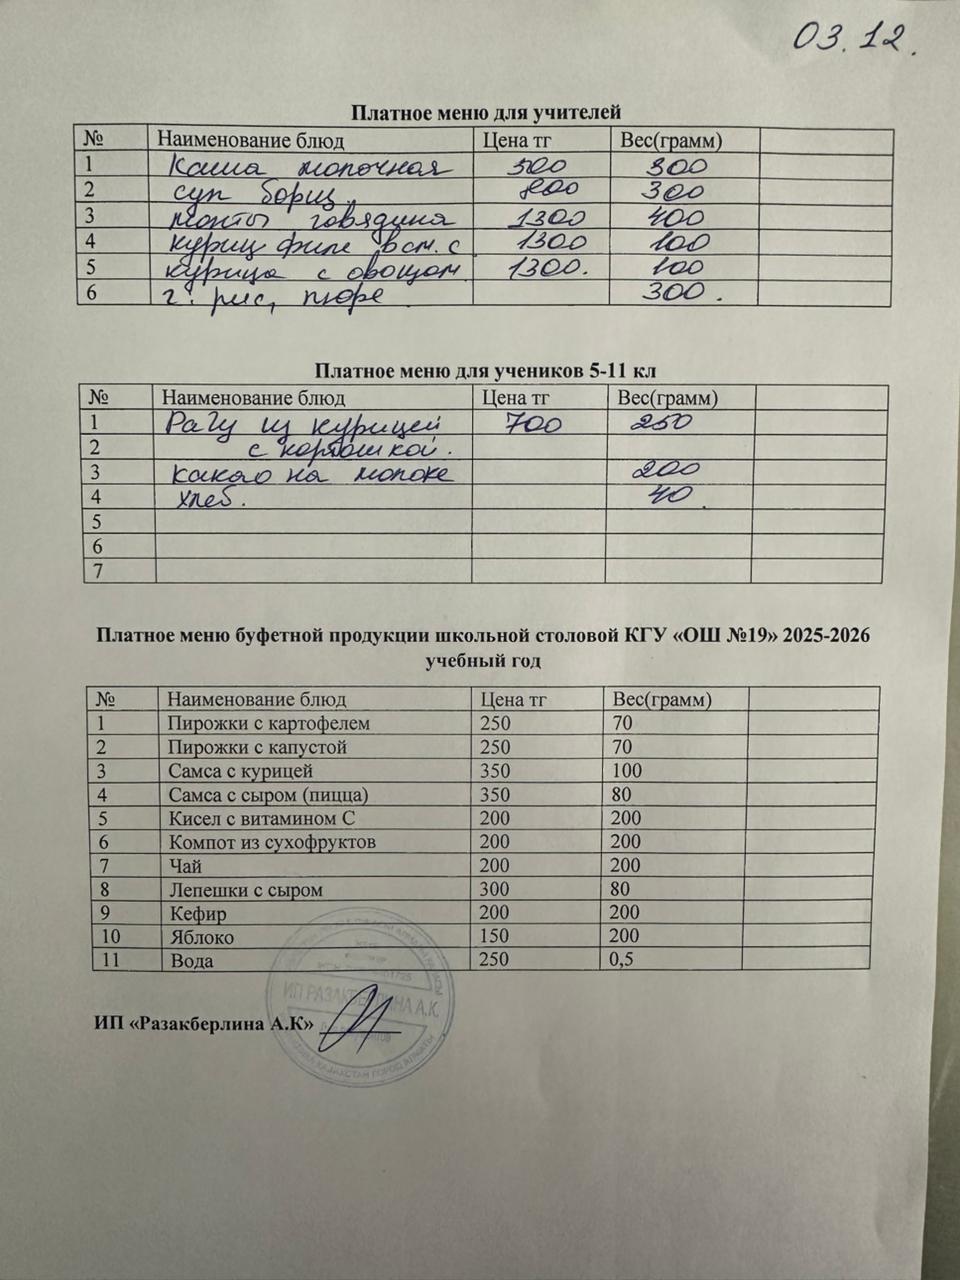 03.12.
Платное меню для учителей
№ Наименование блюд Цена тг Вес(грамм)
1 Каша молочная 500 300
2 суп борщ. 800 300
3 монты говядина 1300 400
4 куриц филе в см. с 1300 100
5 курица с овощом 1300. 100
6 г: рис, пюре 300.
Платное меню для учеников 5-11 кл
№ Наименование блюд Цена тг Вес(грамм)
1 Рагу из курицей 700 250
2 с картошкой.
3 какао на молоке 200
4 хлеб. 40.
5
6
7
Платное меню буфетной продукции школьной столовой КГУ «ОШ №19» 2025-2026
учебный год
№ Наименование блюд Цена тг Вес(грамм)
1 Пирожки с картофелем 250 70
2 Пирожки с капустой 250 70
3 Самса с курицей 350 100
4 Самса с сыром (пицца) 350 80
5 Кисел с витамином С 200 200
6 Компот из сухофруктов 200 200
7 Чай 200 200
8 Лепешки с сыром 300 80
9 Кефир 200 200
10 Яблоко 150 200
11 Вода 250 0,5
ИП РАЗАКБЕРЛИНА А.К.
ИП «Разакберлина А.К»